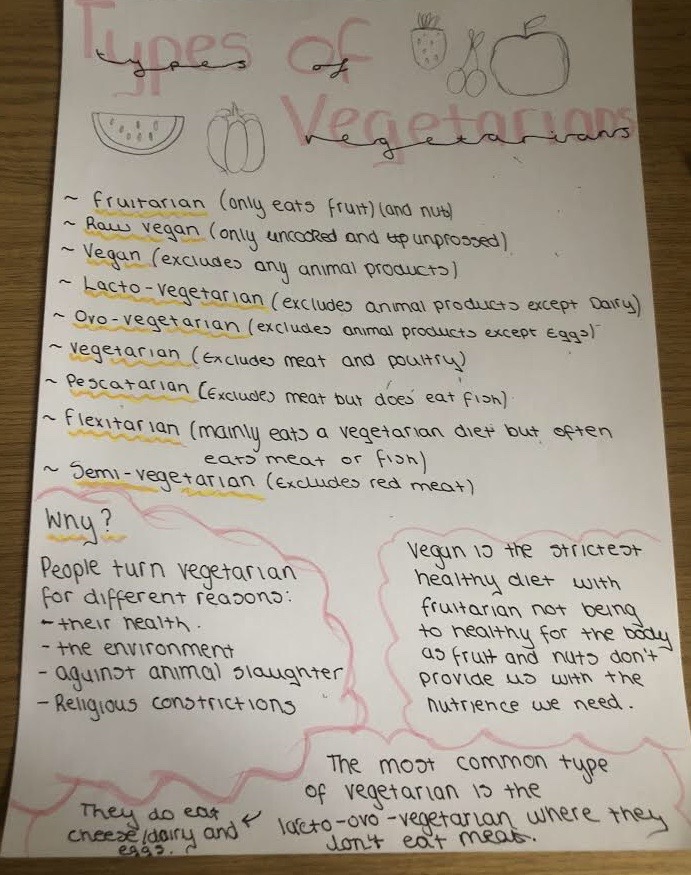 Types of
types of
Vegetarians
vegetarians
~ fruitarian (only eats fruit) (and nut)
~ Raw vegan (only uncooked and unprossed)
~ Vegan (excludes any animal products)
~ Lacto-vegetarian (excludes animal products except Dairy)
~ Ovo-vegetarian (excludes animal products except Eggs)
~ vegetarian (Excludes meat and poultry)
~ Pescatarian (Excludes meat but does eat fish)
~ flexitarian (mainly eats a vegetarian diet but often
eats meat or fish)
~ Semi-vegetarian (Excludes red meat)
Why?
People turn vegetarian
for different reasons:
- their health.
- the environment
- against animal slaughter
- Religious constrictions
Vegan is the strictest
healthy diet with
fruitarian not being
to healthy for the body
as fruit and nuts don't
provide us with the
nutrience we need.
The most common type
of vegetarian is the
lacto-ovo-vegetarian where they
don't eat meat.
They do eat
cheese/dairy and
eggs.